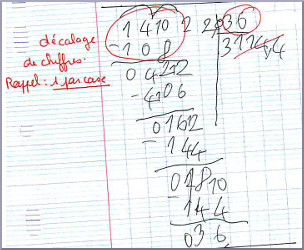 décalage
de chiffres.
Rappel: 1 par case
1 4 10 2 2 8 36
- 1 0 8
0 4 2 12
- 4 10 6
0 1 6 2
- 1 4 4
0 1 8 10
- 1 4 4
0 3 6